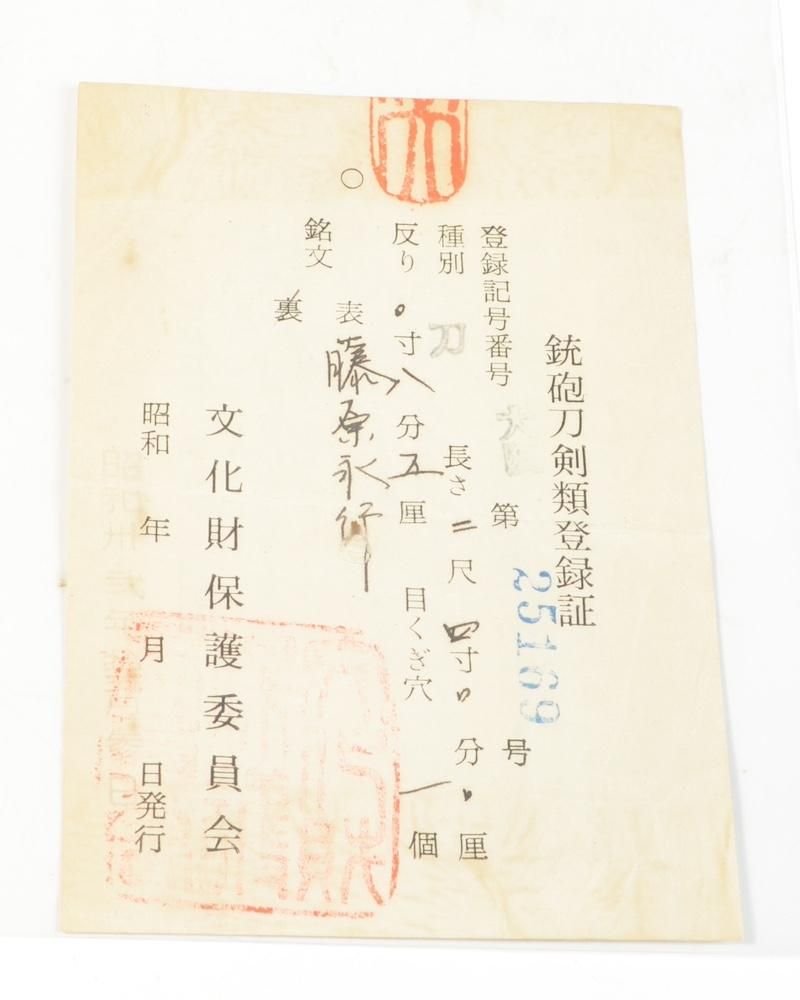 銃砲刀剣類登録証
登録記号番号 大阪 第 25169 号
種別 刀 長さ 二尺 四寸 〇分 〇厘
反り 〇寸 八分 五厘 目くぎ穴 一個
銘文 表 藤原永行
裏
文化財保護委員会
昭和 年 月 日発行